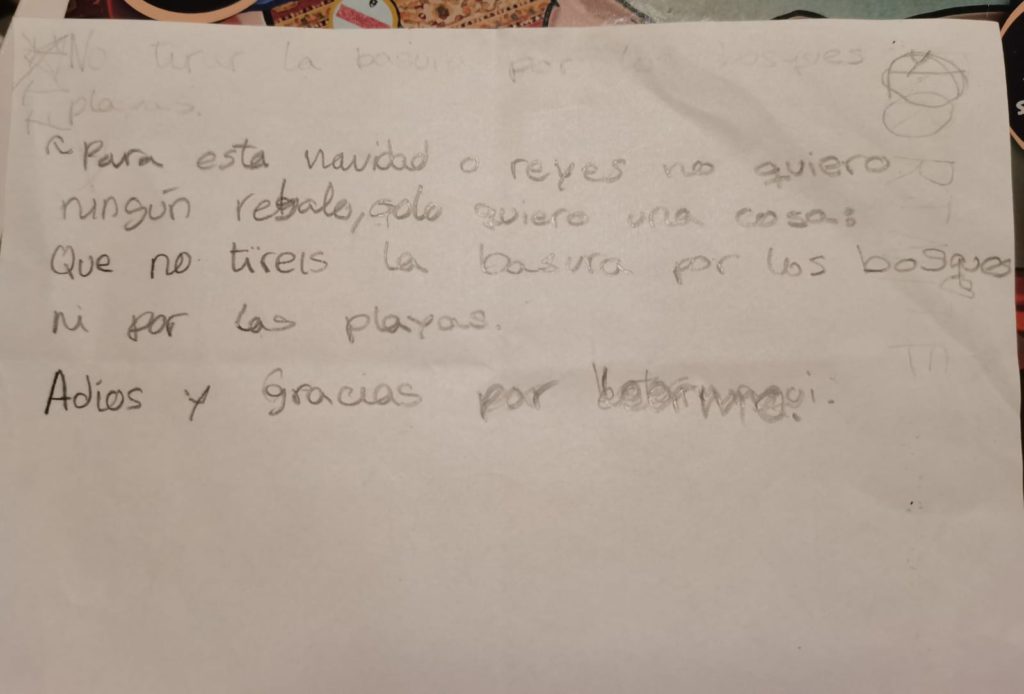 No tirar la basura por los bosques y
playas.
~Para esta navidad o reyes no quiero
ningún regalo, solo quiero una cosa:
Que no tireis la basura por los bosques
ni por las playas.
Adios y gracias por